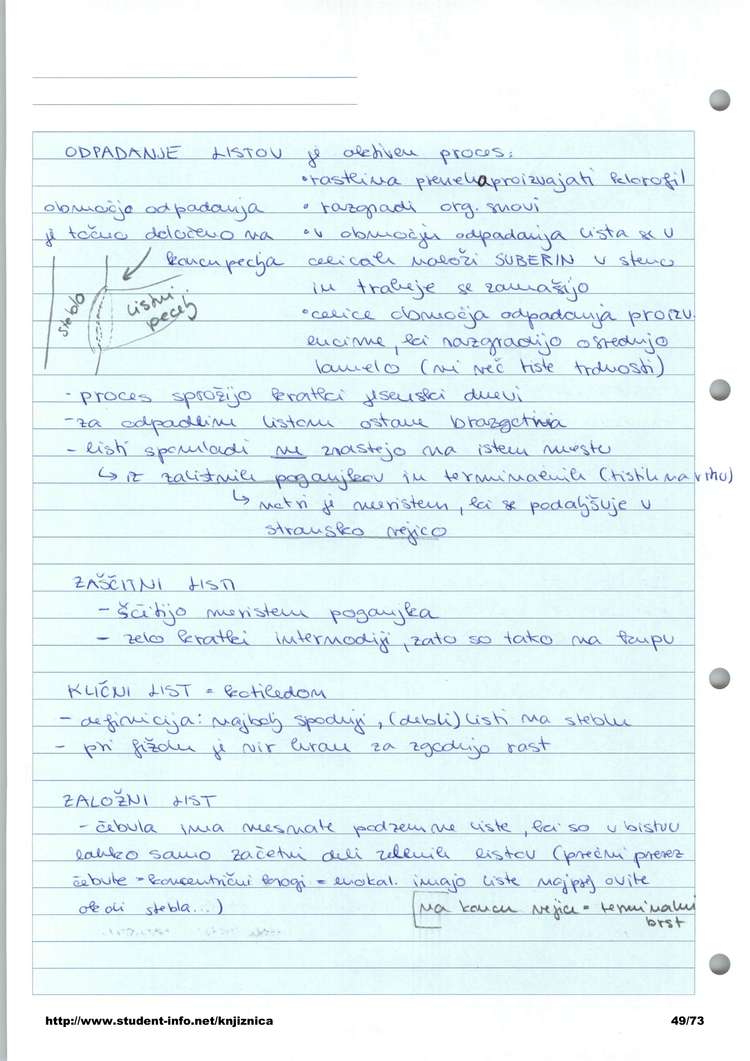 ODPADANJE LISTOV je aktiven proces:
• rastlina preneha proizvajati klorofil
• razgradi org. snovi
• v območju odpadanja lista se v
celicah naloži SUBERIN v steno
in traheje se zamašijo
• celice območja odpadanja proizv.
encime, ki razgradijo osrednjo
lamelo (ni več tiste trdnosti)
območje odpadanja
je točno določeno na
koncu peclja
steblo
listni
pecelj
- proces sprožijo kratki jesenski dnevi
- za odpadlim listom ostane brazgotina
- listi spomladi ne zrastejo na istem mestu
↳ iz zalistnih poganjkov in terminalnih (tistih na vrhu)
↳ notri je meristem, ki se podaljšuje v
stransko vejico
ZAŠČITNI LISTI
- ščitijo meristem poganjka
- zelo kratki internodiji, zato so tako na kupu
KLIČNI LIST = kotiledon
- definicija: najbolj spodnji, (debli) listi na steblu
- pri fižolu je vir hrane za zgodnjo rast
ZALOŽNI LIST
- čebula ima mesnate podzemne liste, ki so v bistvu
lahko samo začetni deli zelenih listov (prečni prerez
čebule = koncentrični krogi = enokal. imajo liste najprej ovite
okoli stebla...)
na koncu vejice = terminalni
brst
http://www.student-info.net/knjiznica
49/73